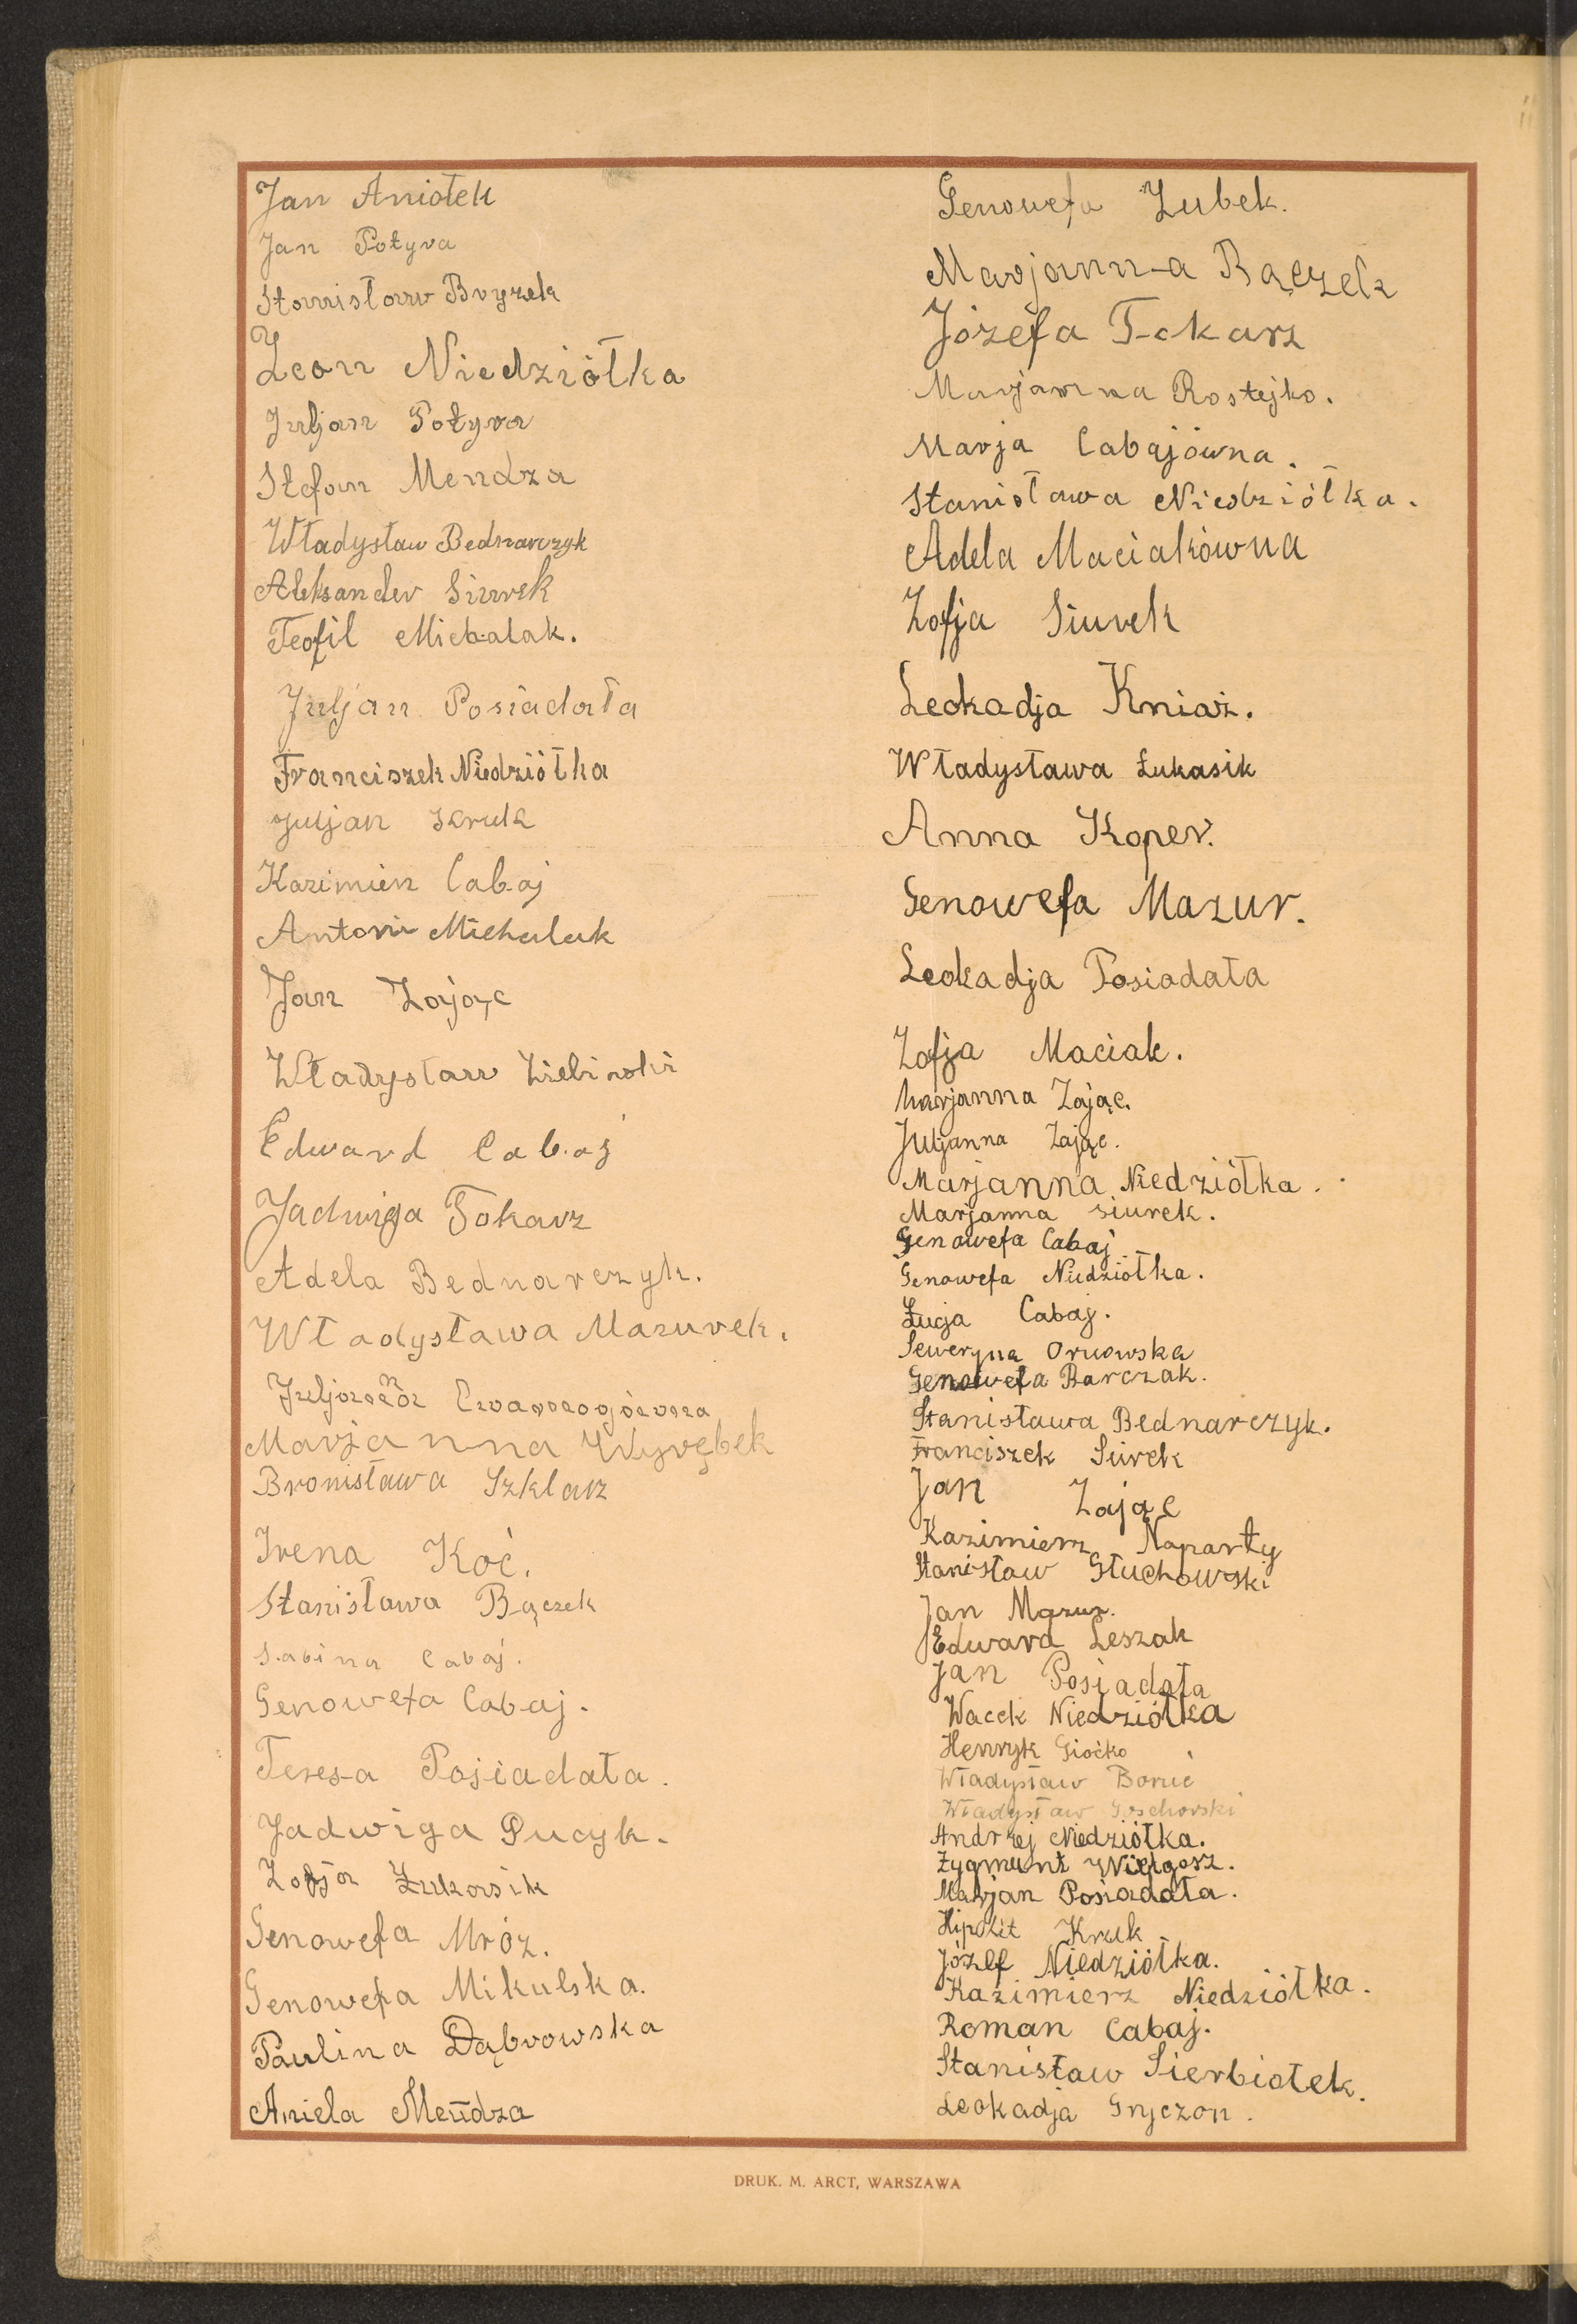 Jan Aniołek
Jan Potyra
Stanisław Bryzek
Leon Niedziółka
Juljan Potyra
Stefan Mendza
Władysław Bednarczyk
Aleksander Siurek
Teofil Michalak.
Juljan Posiadała
Franciszek Niedziółka
Juljan Kruk
Kazimierz Cabaj
Antoni Michalak
Jan Zając
Władysław Zieliński
Edward Cabaj
Jadwiga Tokarz
Adela Bednarczyk.
Władysława Mazurek.
Marjanna Wyrębek
Bronisława Szklarz
Irena Koć.
Stanisława Bączek
Sabina Cabaj.
Genowefa Cabaj.
Teresa Posiadała.
Jadwiga Pucyk.
Zofja Łukasik
Genowefa Mróz.
Genowefa Mikulska.
Paulina Dąbrowska
Aniela Mendza
Genowefa Zubek.
Marjanna Bączek
Józefa Tokarz
Marjanna Rostejko.
Marja Cabajówna.
Stanisława Niedziółka.
Adela Maciakówna
Zofja Siurek
Leokadja Kniaź.
Władysława Łukasik
Anna Koper.
Genowefa Mazur.
Leokadja Posiadała
Zofja Maciak.
Marjanna Zając.
Juljanna Zając.
Marjanna Niedziółka.
Marjanna Siurek.
Genowefa Cabaj
Genowefa Niedziółka.
Łucja Cabaj.
Seweryna Orłowska
Genowefa Barczak.
Stanisława Bednarczyk.
Franciszek Siurek
Jan Zając
Kazimierz Naparty
Stanisław Głuchowski
Jan Mazur.
Edward Leszak
Jan Posiadała
Wacek Niedziółka
Henryk
Władysław Boruć
Władysław
Andrzej Niedziółka.
Zygmunt Wielgosz.
Marjan Posiadała.
Hipolit Kruk
Józef Niedziółka.
Kazimierz Niedziółka.
Roman Cabaj.
Stanisław Sierbiołek.
Leokadja Gryczon.
DRUK. M. ARCT, WARSZAWA